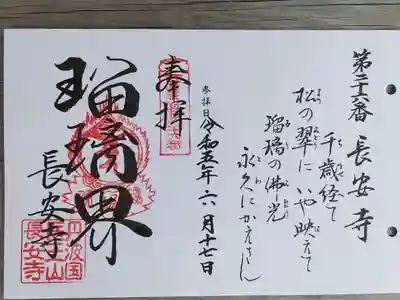 第二十六番　長安寺
千歳経て
松の翠に いや映えて
瑠璃の佛光
永久に
参拝日 令和五年六月十七日
奉拝
瑠璃界
長安寺
丹波国
長安寺